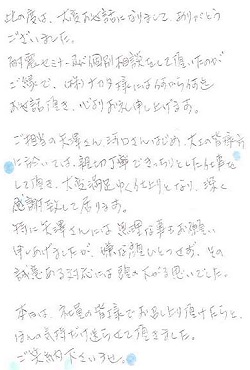 此の度は、大変お世話になりまして、ありがとう
ございました。
耐震セミナーで個別相談をして頂いたのが
ご縁で、(株)ナカタ様には何から何迄
お世話頂き、心よりお礼申し上げます。
ご担当の矢澤さん、河口さんはじめ、大工の皆様方
に於いては、親切丁寧できっちりとした仕事を
して頂き、大変満足ゆく仕上りとなり、深く
感謝致して居ります。
特に矢澤さんには無理な事もお願い
申しあげましたが、嫌な顔ひとつせず、その
誠意ある対応には頭の下がる思いでした。
本日は、社員の皆様でお召し上り頂けたらと、
ほんの気持だけ送らせて頂きました。
ご笑納下さいませ。